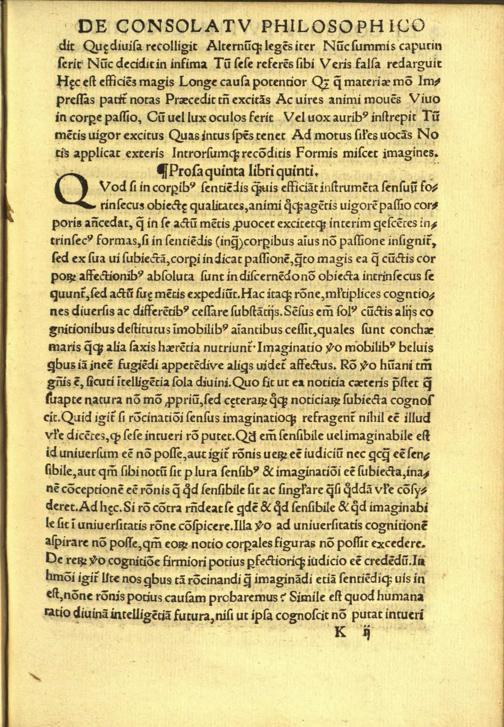 DE CONSOLATV PHILOSOPHICO
dit Quę diuisa recolligit Alternũq; legẽs iter Nũc summis caputin
serit Nũc decidit in infima Tũ sese referẽs sibi Veris falsa redarguit
Hęc est efficiẽs magis Longe causa potentior Qꝫ q̃ materiæ mõ Im-
pressas patit᷑ notas Præcedit tñ excitãs Ac uires animi mouẽs Viuo
in corpe passio, Cũ uel lux oculos ferit Vel uox auribꝰ instrepit Tũ
mẽtis uigor excitus Quas intus spẽs tenet Ad motus sil̃es uocãs No
tis applicat exteris Introrsumq; recõditis Formis miscet imagines.
¶Prosa quinta libri quinti.
QVod si in corꝑibꝰ sentiẽdis q̃uis efficiãt instrumẽta sensuũ fo-
rinsecus obiectę qualitates, animi q̃q; agẽtis uigorẽ passio cor-
poris añcedat, q̃ in se actũ mẽtis ꝓuocet excitetq; interim qescẽres in-
trinsecꝰ formas, si in sentiẽdis (inq̃) corpibus aĩus nõ passione insignit᷑,
sed ex sua ui subiectã, corpi indicat passionẽ, q̃to magis ea q̃ cũctis cor
poꝝ affectionibꝰ absoluta sunt in discernẽdo nõ obiecta intrinsecus se
quunt᷑, sed actũ suę mẽtis expediũt. Hac itaq; rõne, ml̃tiplices cognitio-
nes diuersis ac differẽtibꝰ cessare substãtijs. Sẽsus em̃ solꝰ cũctis alijs co
gnitionibus destitutus ĩmobilibꝰ aĩantibus cessit, quales sunt conchæ
maris q̃q; alia saxis hærẽtia nutriunt᷑. Imaginatio ꝟo mobilibꝰ beluis
qbus iã ineẽ fugiẽdi appetẽdiue aliqs uidet᷑ affectus. Rõ ꝟo hũani tm̃
gñis ẽ, sicuti ĩtelligẽtia sola diuini. Quo fit ut ea notitia cæteris p̃stet q̃
suapte natura nõ mõ ꝓpriũ, sed cęteraꝝ q̃q; noticiaꝝ subiecta cognos
cit. Quid igit᷑ si rõcinatiõi sensus imaginatioq; refragent᷑ nihil eẽ illud
vl̃e dicẽtes, qꝫ sese intueri rõ putet. Qđ em̃ sensibile uel imaginabile est
id uniuersum eẽ nõ posse, aut igit᷑ rõnis ueꝝ eẽ iudiciũ nec qcq̃ eẽ sen-
sibile, aut qm̃ sibi notũ sit plura sensibꝰ & imaginatiõi eẽ subiecta, ina-
nẽ cõceptionẽ eẽ rõnis q̃ qđ sensibile sit ac singl̃are q̃si qđdã vl̃e cõsy-
deret. Ad hęc. Si rõ cõtra rñdeat se qdẽ & qđ sensibile & qđ imaginabi
le sit ĩ uniuersitatis rõne cõspicere. Illa ꝟo ad uniuersitatis cognitionẽ
aspirare nõ posse, qm̃ eoꝝ notio corpales figuras nõ possit excedere.
De reꝝ ꝟo cognitiõe firmiori potius ꝑfectioriq; iudicio eẽ credẽdũ. In
hmõi igit᷑ lite nos qbus tã rõcinandi q̃ imaginãdi etiã sentiẽdiq; uis in
est, nõne rõnis potius causam probaremus? Simile est quod humana
ratio diuinã intelligẽtiã futura, nisi ut ipsa cognoscit nõ putat intueri
K ij